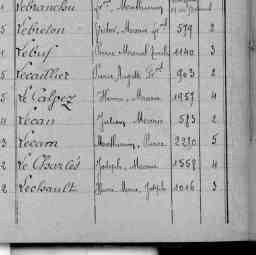 1 Lebranchu Gd. Mathurin
5 Lebreton Victor, Marie Gd. 579 2
1 Lebuf Pierre Marcel 1140 3
5 Lecaillier Pierre Auguste Gd. 903 2
5 Le Calpez Marie 1957 4
4 Lecan Julien, Marie 583 2
3 Lecam Mathurin, Pierre 2220 5
2 Le Charlès Joseph, Marie 1558 4
2 Lechault Pierre Marie, Joseph 1016 3